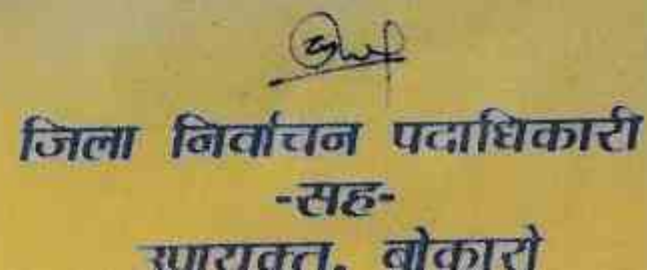 जिला निर्वाचन पदाधिकारी
-सह-
उपायुक्त, बोकारो